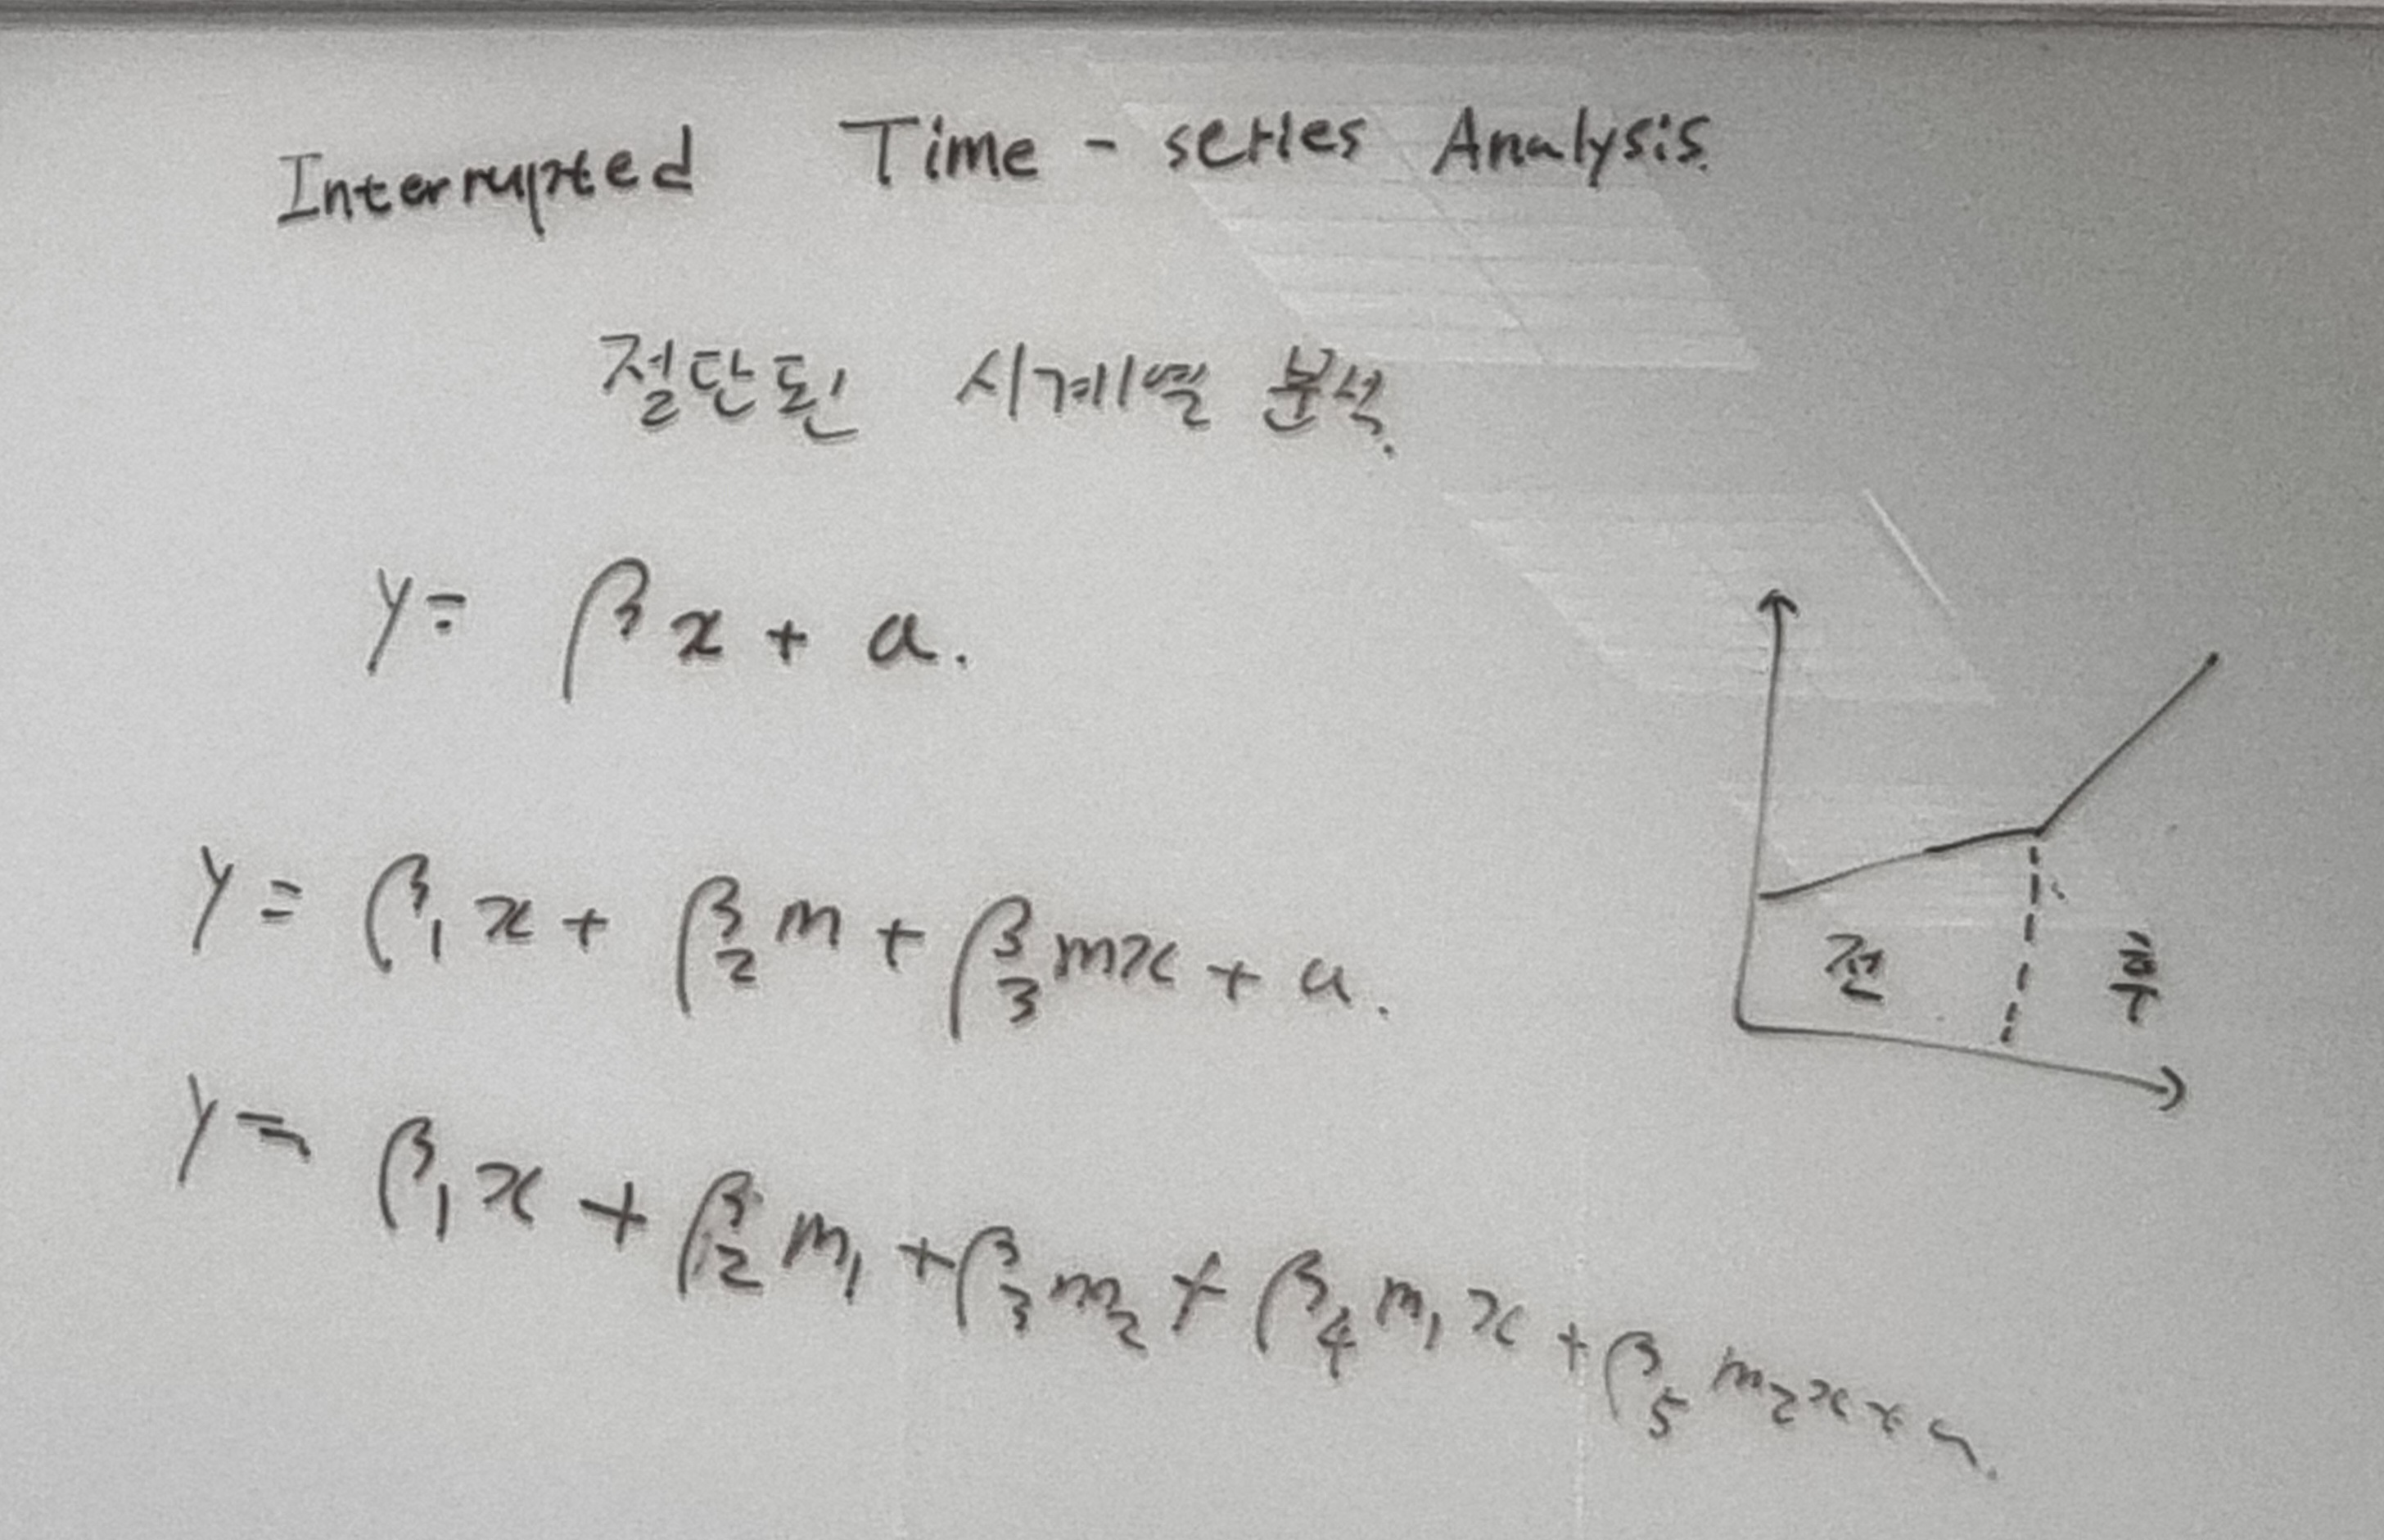 Interrupted Time - series Analysis.
절단된 시계열 분석.
y = βx + a.
y = β₁x + β₂m + β₃mx + a.
y = β₁x + β₂m₁ + β₃m₂ + β₄m₁x + β₅m₂x + a.
전 후